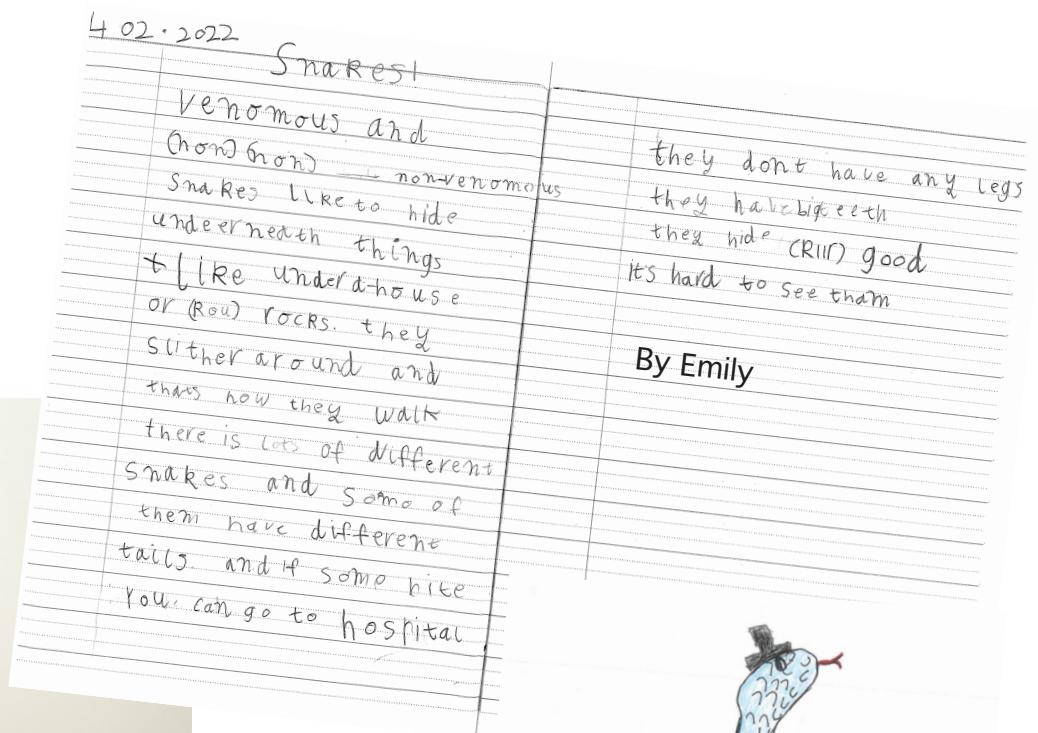 4 02.2022
Snakes!
venomous and
(non) (non) non-venomous
Snakes like to hide
undeerneath things
like under a house
or (Rou) rocks. they
slither around and
thats how they walk
there is lots of different
snakes and some of
them have different
tails and if some bite
You. can go to hospital
they dont have any legs
they have big teeth
they hide (RIIr) good
it's hard to see tham
By Emily